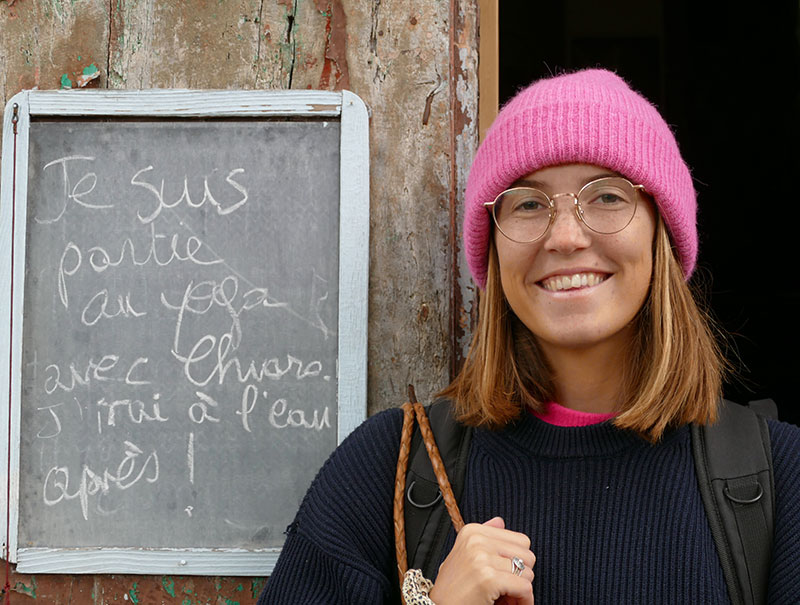 Je suis
partie
au yoga
avec Chiara.
J'irai à l'eau
après !